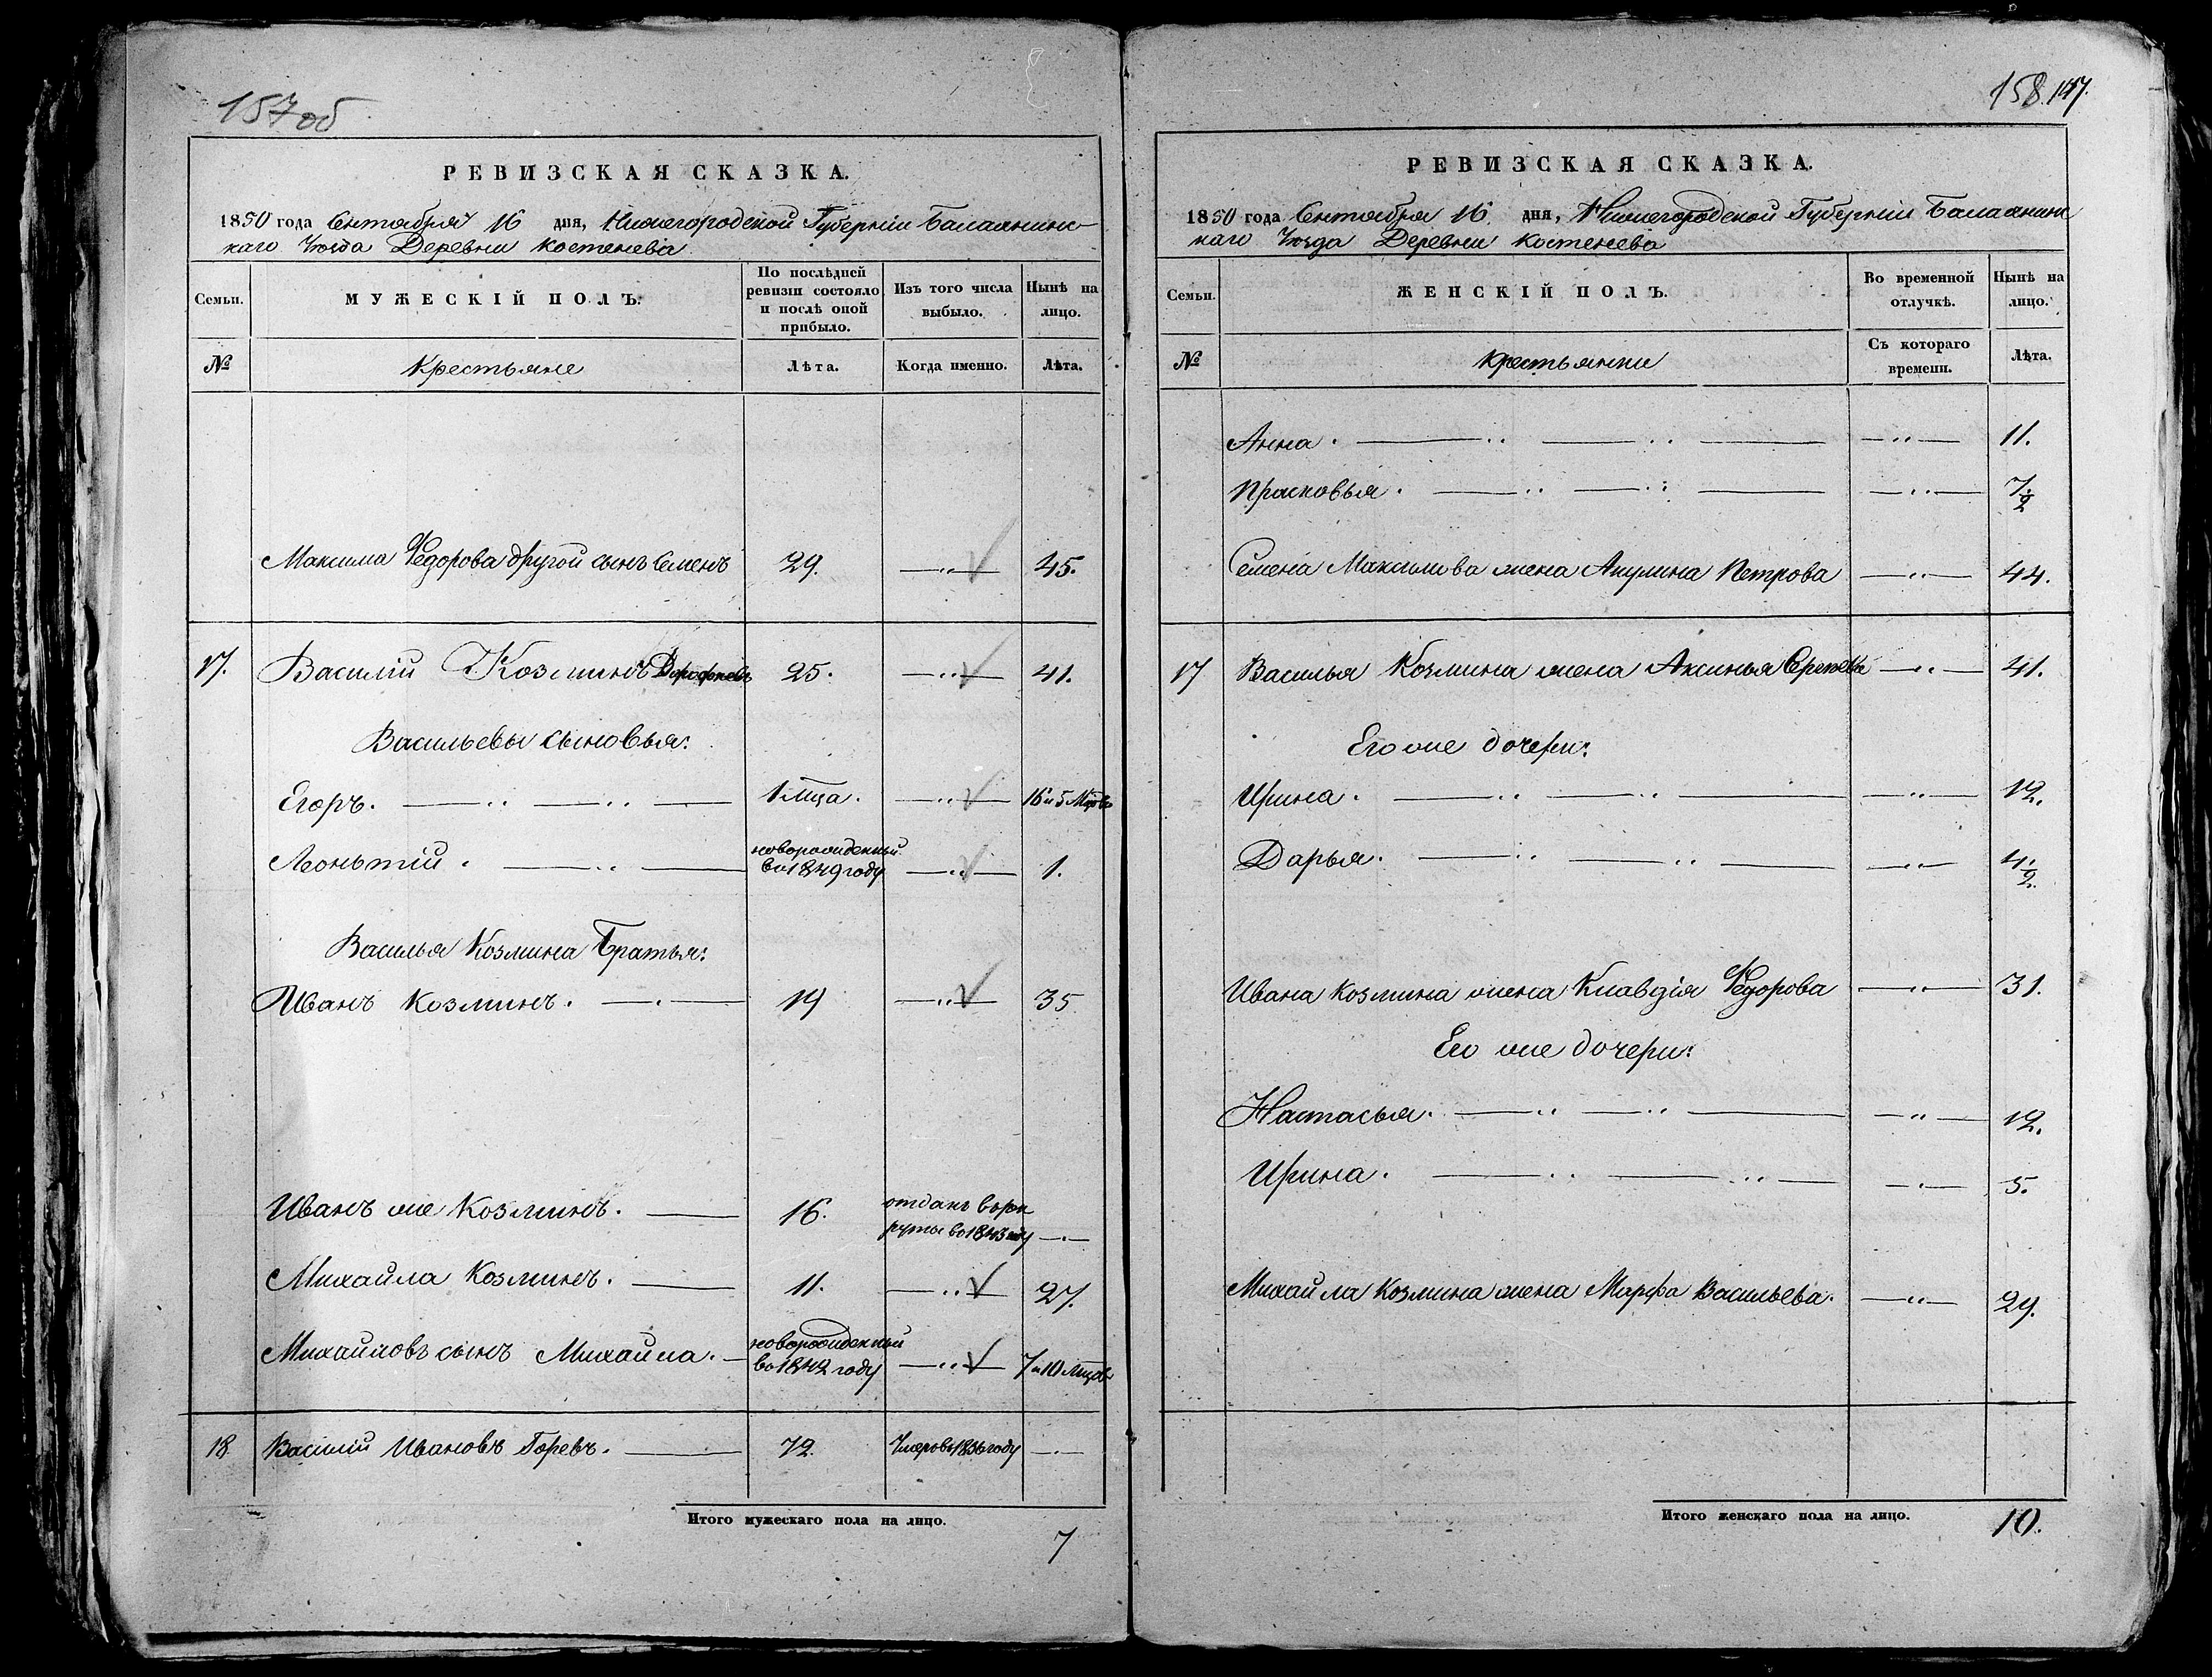 157 об
РЕВИЗСКАЯ СКАЗКА.
1850 года Сентября 16 дня, Нижегородской Губерніи Балахнинс-
каго Уѣзда Деревни Костенева
Семьи.
МУЖЕСКІЙ ПОЛЪ.
По послѣдней ревизіи состояло и послѣ оной прибыло.
Изъ того числа выбыло.
Нынѣ на лицо.
№ Крестьяне Лѣта. Когда именно. Лѣта.
Максима Федорова другой сынъ Семенъ 29. —„— 45.
17. Василій Козминъ Дорофеевъ 25. —„— 41.
Васильевы сыновья:
Егоръ. — „ — „ — 1 мца. —„— 16 и 5 мцовъ
Леоньтій. — „ — новорожденный
во 1849 году —„— 1.
Василья Козмина Братья:
Иванъ Козминъ. — „ — 19 —„— 35
Иванъ же Козминъ. — 16. отданъ в рек
руты во 1843 году —„—
Михайла Козминъ. — 11. —„— 27.
Михайловъ сынъ Михайла. — новорожденный
во 1842 году —„— 7 и 10 мцовъ
18 Василій Ивановъ Горевъ. — 72. Умеръ во 1836 году —„—
Итого мужескаго пола на лицо. 7
158. 147.
РЕВИЗСКАЯ СКАЗКА.
1850 года Сентября 16 дня, Нижегородской Губерніи Балахнинс
каго Уѣзда Деревни Костенева
Семьи.
ЖЕНСКІЙ ПОЛЪ.
Во временной отлучкѣ.
Нынѣ на лицо.
№ Крестьянки Съ котораго времени. Лѣта.
Анна. — „ — „ — —„— 11.
Прасковья. — „ — „ — —„— 7 1/2
Семена Максимова жена Акулина Петрова —„— 44.
17 Василья Козмина жена Аксинья —„— 41.
Его же дочери:
Ирина. — „ — „ — —„— 12.
Дарья. — „ — „ — —„— 4 1/2.
Ивана Козмина жена Клавдія Федорова —„— 31.
Его же дочери:
Настасья. — „ — „ — —„— 12.
Ирина. — „ — „ — —„— 5.
Михайла Козмина жена Марфа Васильева. —„— 29.
Итого женскаго пола на лицо. 10.